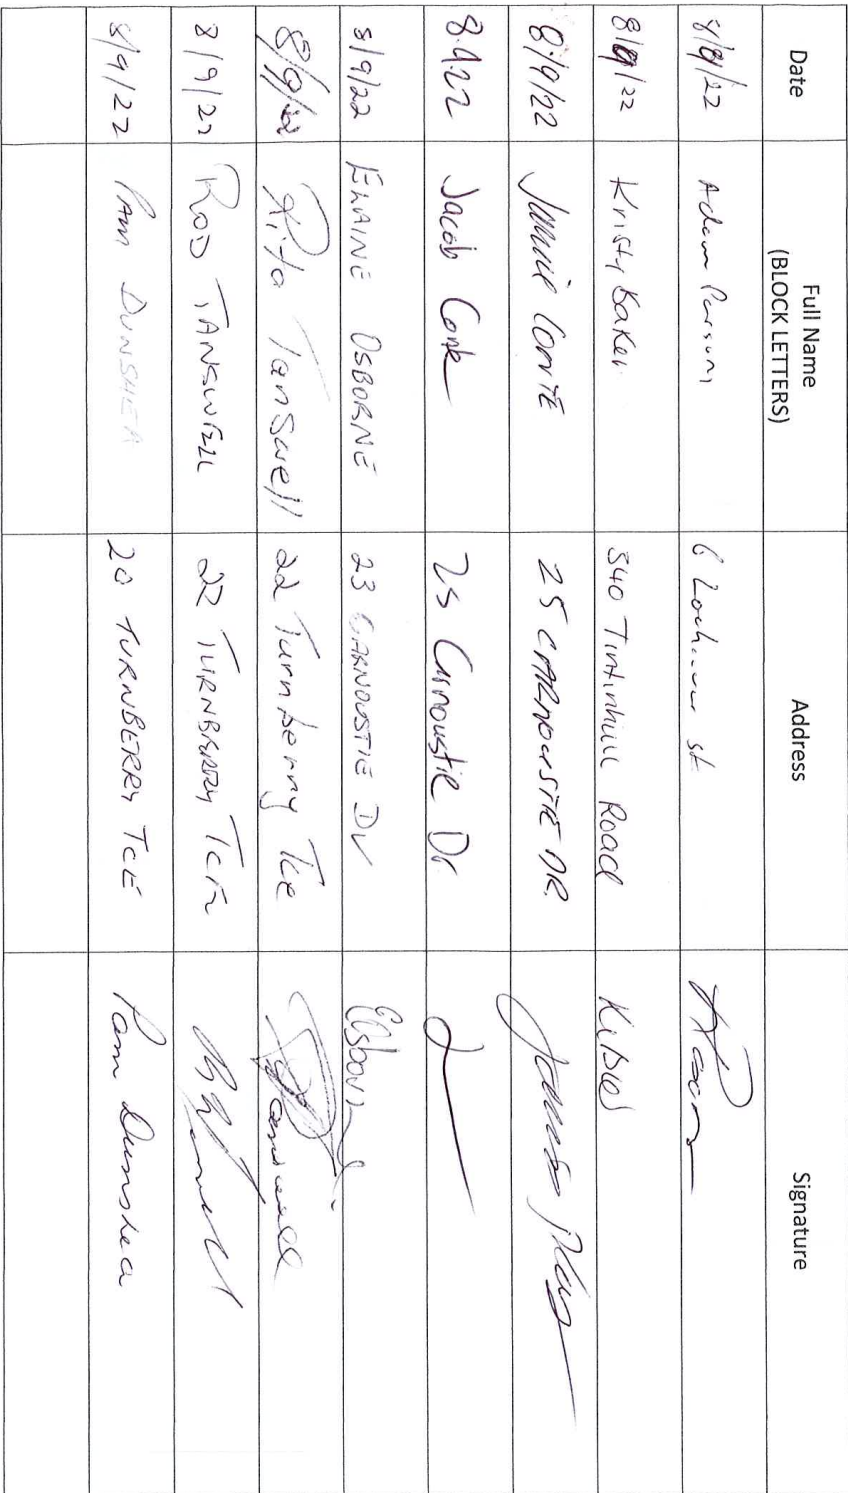 Date Full Name Address Signature
(BLOCK LETTERS)
8/9/22 Adam Parsons 6 st
8/9/22 Kristy Baker 340 Tintinhull Road
8/9/22 Jannie CONTE 25 CARNOUSTIE DR.
8.9.22 Jacob Conte 25 Carnoustie Dr
8/9/22 ELAINE OSBORNE 23 CARNOUSTIE DV
8/9/22 Rita Tanswell 22 Turnberry Tce
8/9/22 ROD TANSWELL 22 TURNBERRY TCE
8/9/22 PAM DUNSHEA 20 TURNBERRY TCE Pam Dunshea